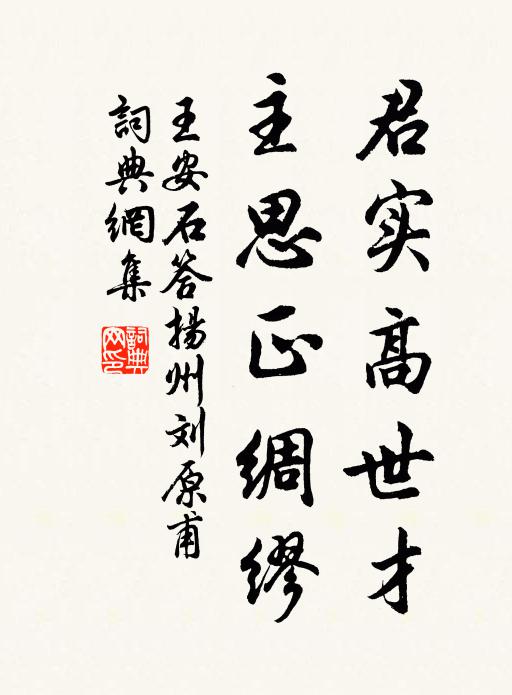 君实高世才
主思正绸缪
王安石答揚州刘原甫
詞典網集
詞典網印